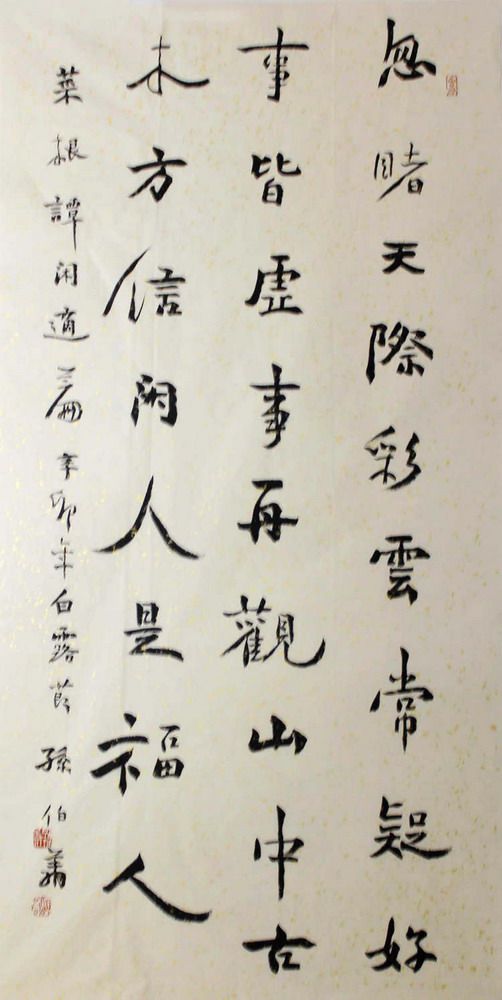 忽睹天際彩雲常疑好
事皆虛事再觀山中古
木方信閑人是福人
菜根譚閑適篇辛卯年白露節孫伯翥